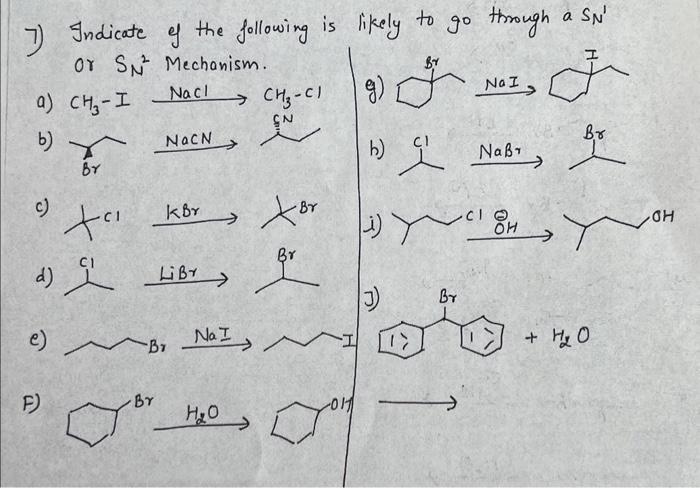 7) Indicate of the following is likely to go through a SN1
or SN2 Mechanism.
a) CH3-I NaCl CH3-Cl
b) Br NaCN CN
c) Cl KBr Br
d) Cl LiBr Br
e) Br NaI I
F) Br H2O OH
g) Br NaI I
h) Cl NaBr Br
i) Cl ⊖OH OH
J) Br + H2O